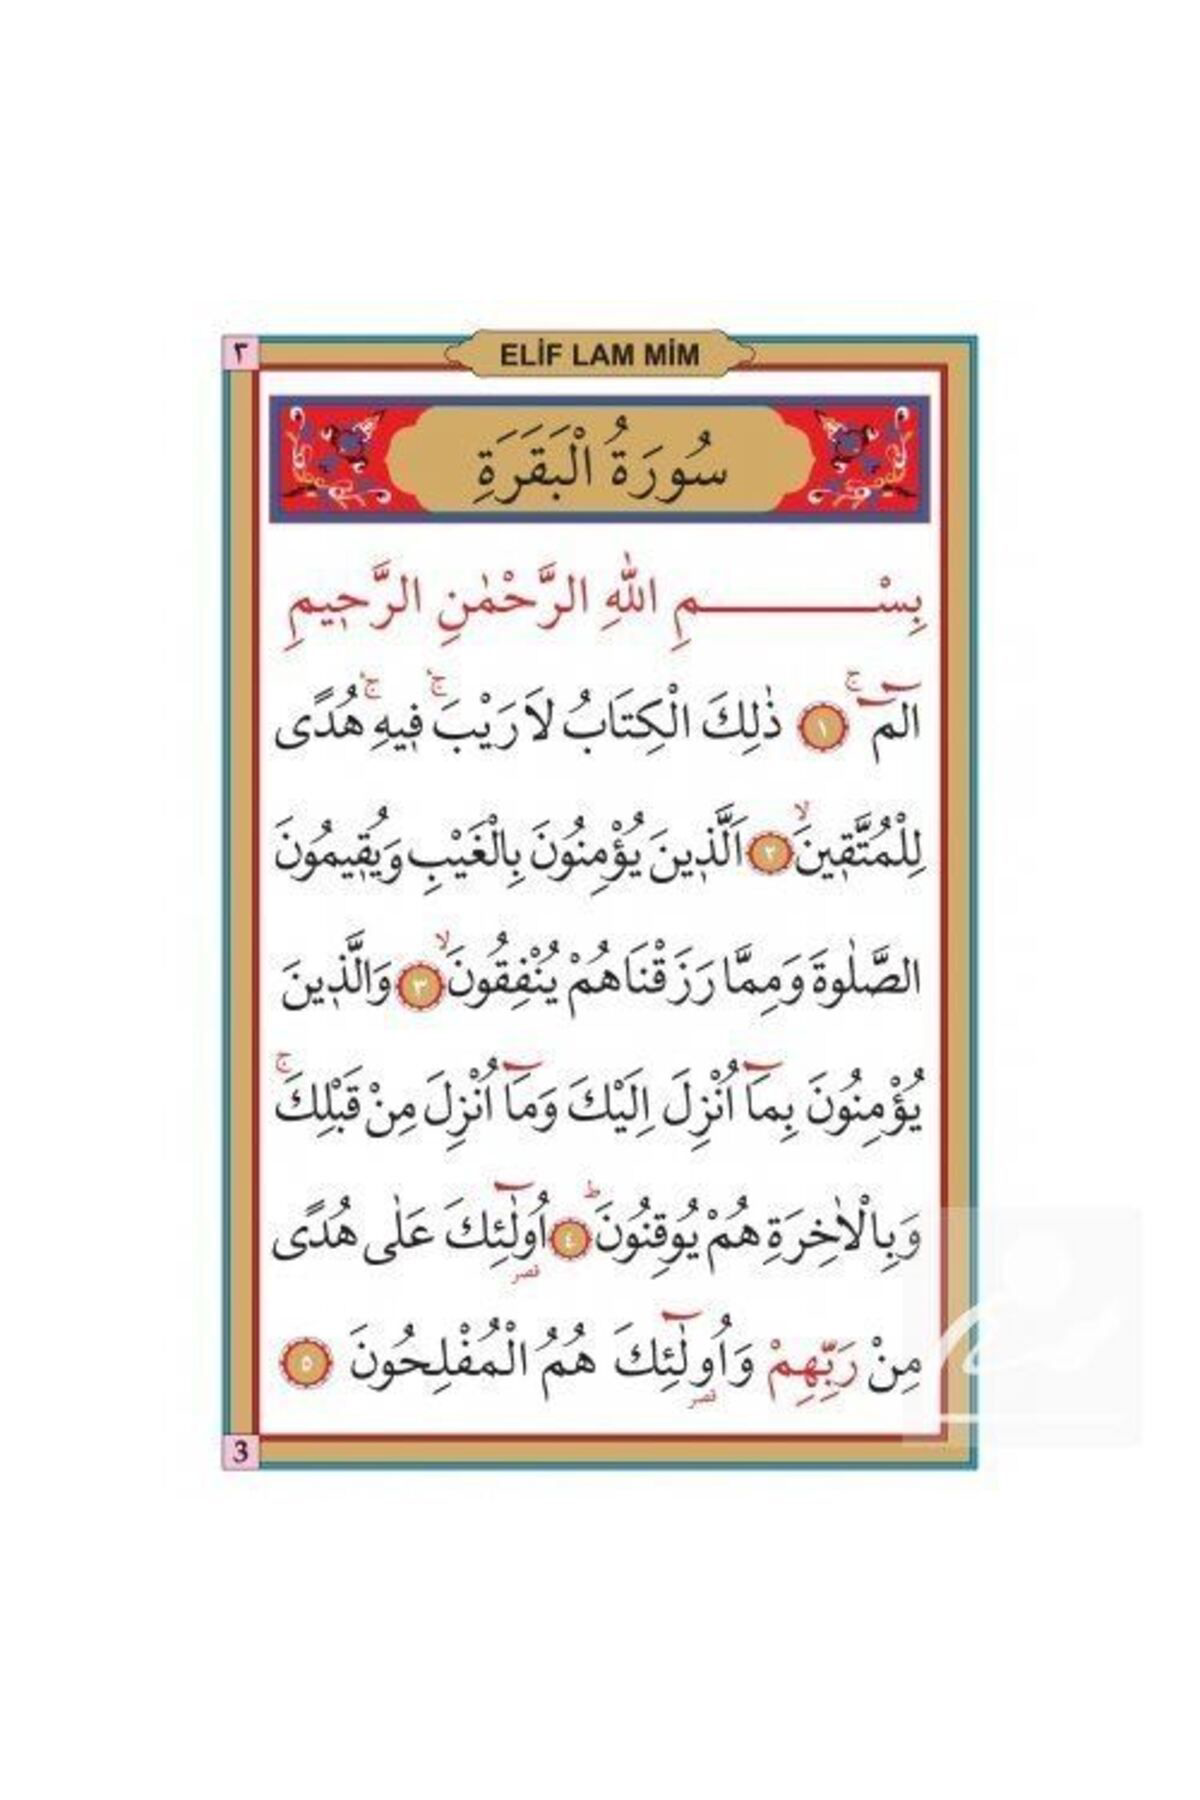 ٣
ELİF LAM MİM
سُورَةُ الْبَقَرَةِ
بِسْــــــــمِ اللّٰهِ الرَّحْمٰنِ الرَّحٖيمِ
الٓمٓ ۚ ﴿١﴾ ذٰلِكَ الْكِتَابُ لَا رَيْبَ ۚۛ فٖيهِ ۚۛ هُدًى
لِلْمُتَّقٖينَ ۙ ﴿٢﴾ اَلَّذٖينَ يُؤْمِنُونَ بِالْغَيْبِ وَيُقٖيمُونَ
الصَّلٰوةَ وَمِمَّا رَزَقْنَاهُمْ يُنْفِقُونَ ۙ ﴿٣﴾ وَالَّذٖينَ
يُؤْمِنُونَ بِمَٓا اُنْزِلَ اِلَيْكَ وَمَٓا اُنْزِلَ مِنْ قَبْلِكَ ۚ
وَبِالْاٰخِرَةِ هُمْ يُوقِنُونَ ؕ ﴿٤﴾ اُولٰٓئِكَ عَلٰى هُدًى
قصر
مِنْ رَبِّهِمْ وَاُولٰٓئِكَ هُمُ الْمُفْلِحُونَ ﴿٥﴾
قصر
3